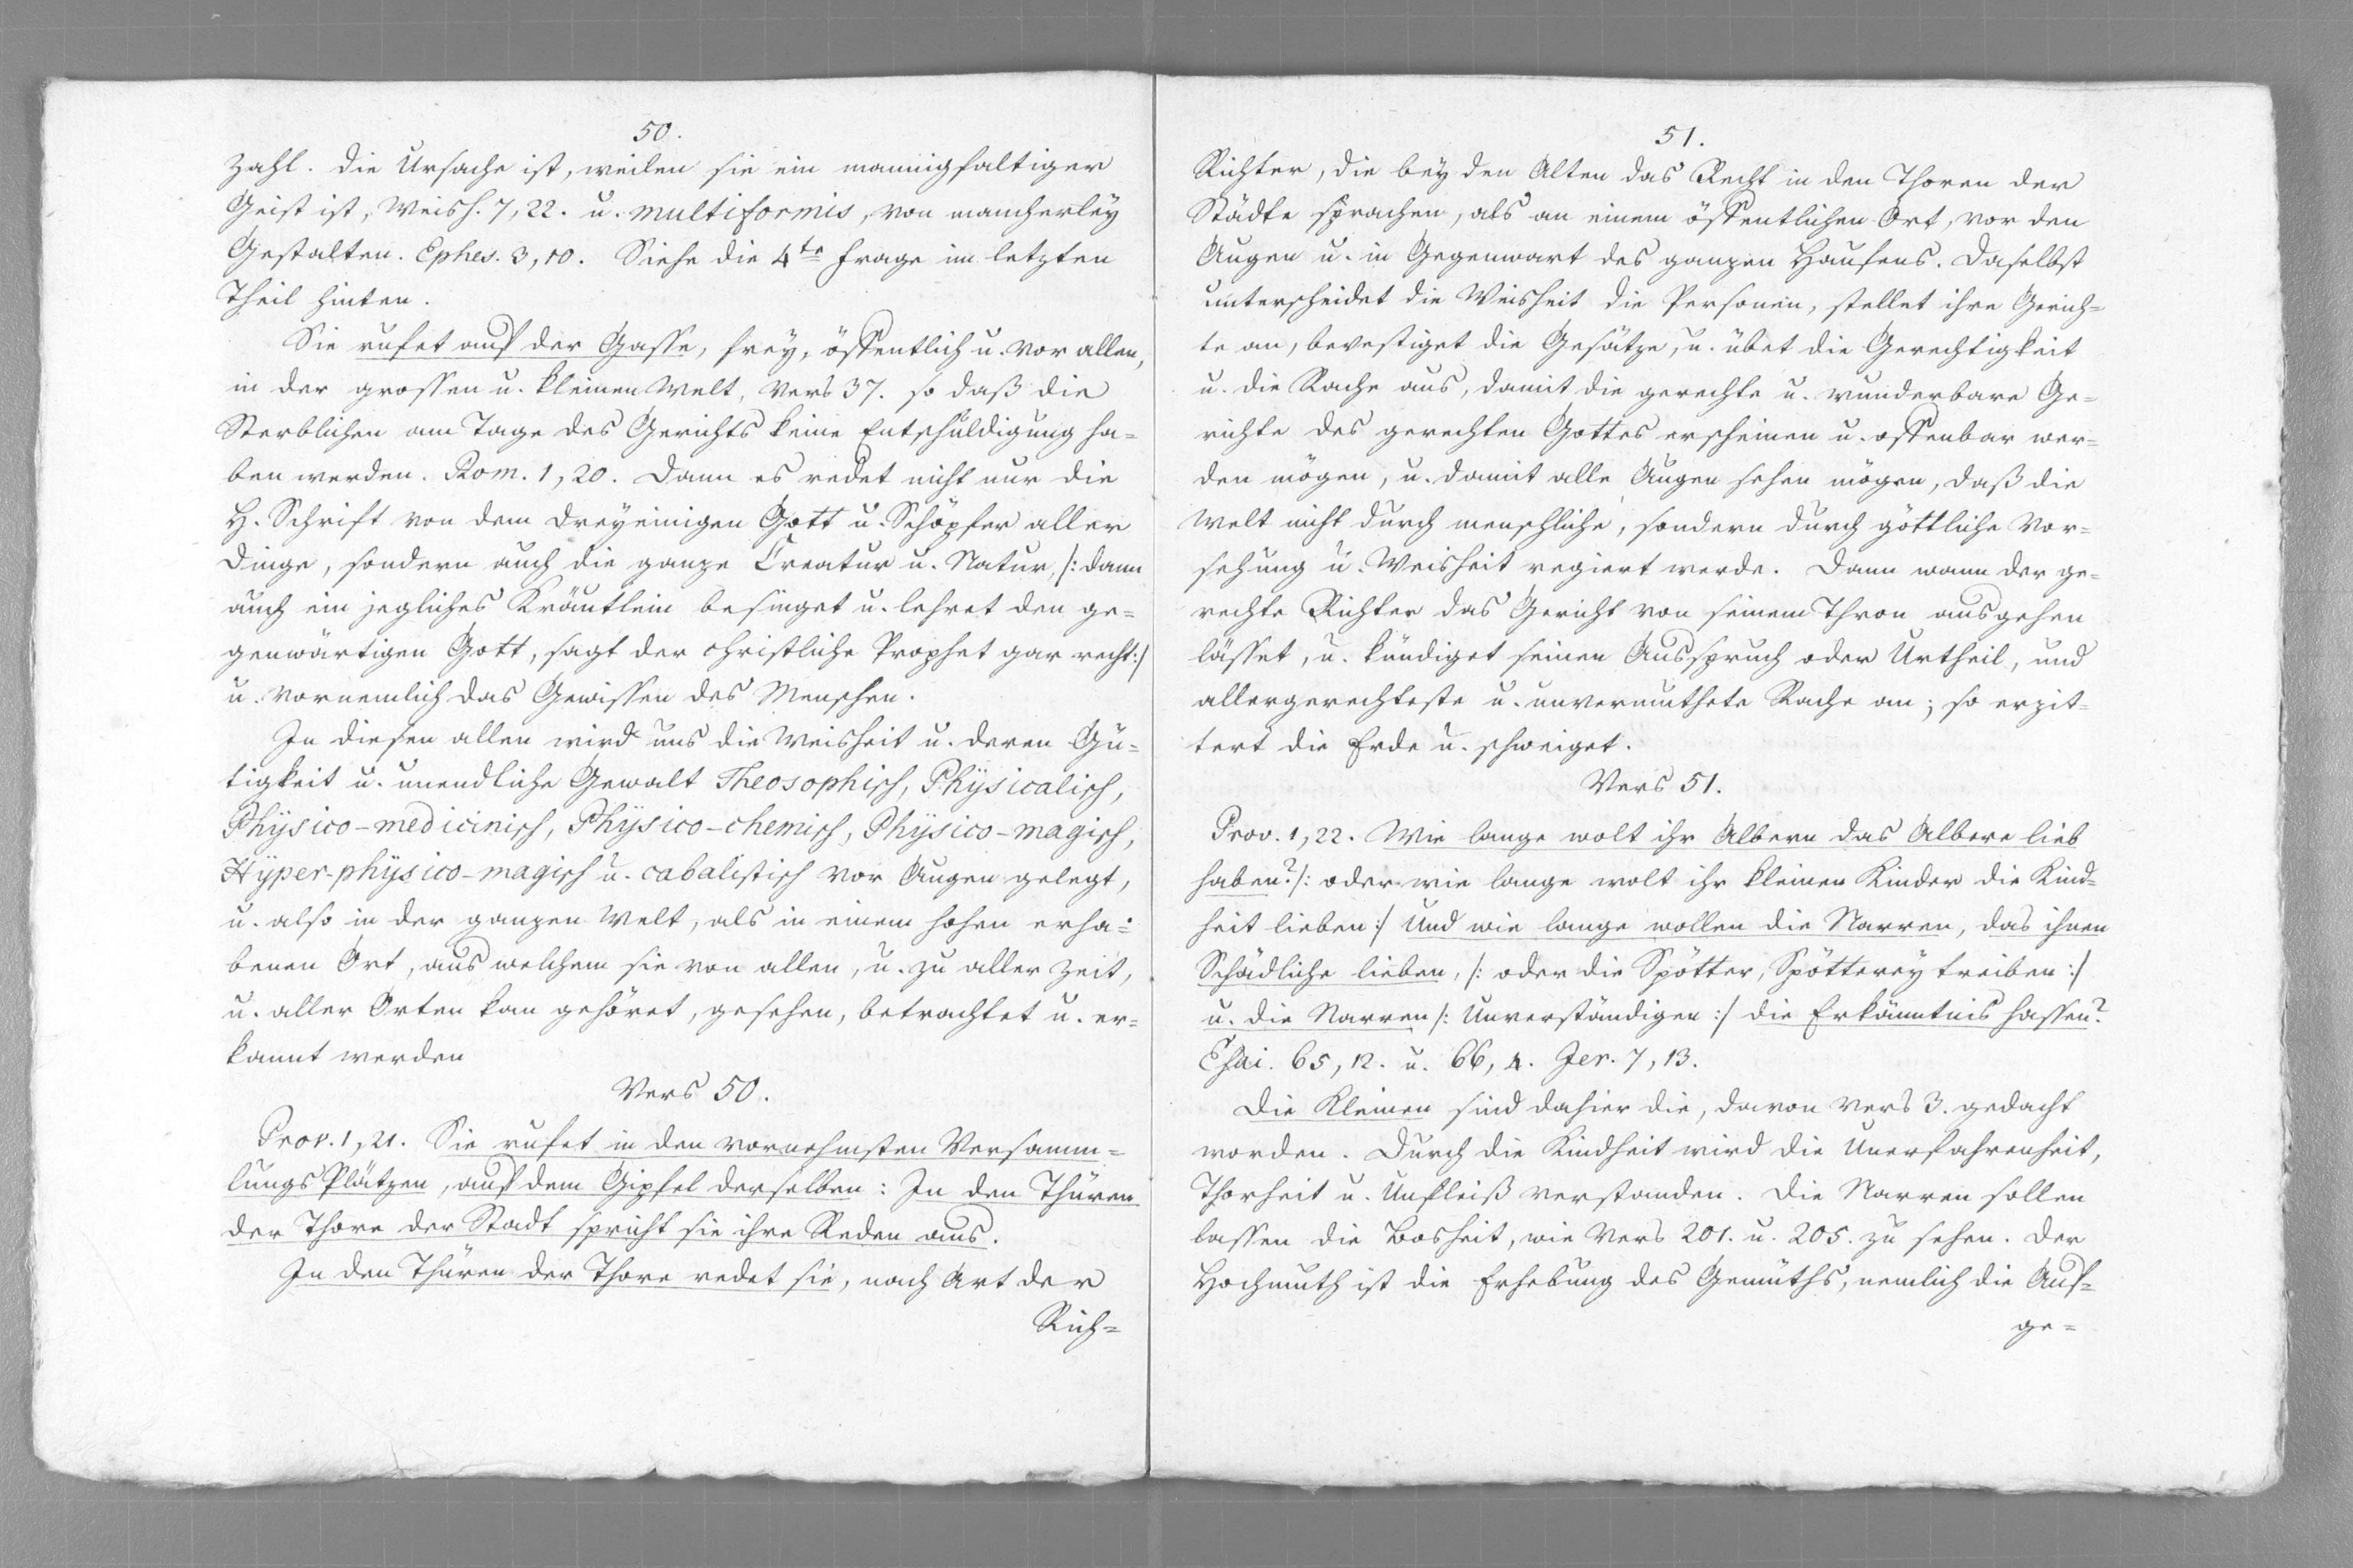 50.
Zahl. Die Ursache ist, weilen sie ein mannigfaltiger
Geist ist, Weish. 7, 22. u. multiformis, von mancherley
Gestalten. Ephes. 3, 10. Siehe die 4te Frage im letzten
Theil hinten.
Sie rufet auf der Gasse, frey, öffentlich u. vor allen,
in der grossen u. kleinen Welt, Vers 37. so daß die
Sterblichen am Tage des Gerichts keine Entschuldigung ha=
ben werden. Rom. 1, 20. Dann es redet nicht nur die
H. Schrift von dem dreyeinigen Gott u. Schöpfer aller
Dinge, sondern auch die ganze Creatur u. Natur, /: dann
auch ein jegliches Kräutlein besinget u. lehret den ge=
genwärtigen Gott, sagt der christliche Prophet gar recht :/
u. vornemlich das Gewissen des Menschen.
In diesen allen wird uns die Weisheit u. deren Gü=
tigkeit u. unendliche Gewalt Theosophisch, Physicalisch,
Physico-medicinisch, Physico-chemisch, Physico-magisch,
Hyper-physico-magisch u. cabalistisch vor Augen gelegt,
u. also in der ganzen Welt, als in einem hohen erha=
benen Ort, aus welchem sie von allen, u. zu aller Zeit,
u. aller Orten kan gehöret, gesehen, betrachtet u. er=
kannt werden
Vers 50.
Prov. 1, 21. Sie rufet in den vornehmsten Versamm=
lungs Plätzen, auf dem Gipfel derselben: In den Thüren
der Thore der Stadt spricht sie ihre Reden aus.
In den Thüren der Thore redet sie, nach Art der
Rich=
51.
Richter, die bey den Alten das Recht in den Thoren der
Städte sprachen, als an einem öffentlichen Ort, vor den
Augen u. in Gegenwart des ganzen Haufens. Daselbst
unterscheidet die Weisheit die Personen, stellet ihre Gerich=
te an, bevestiget die Gesätze, u. übet die Gerechtigkeit
u. die Rache aus, damit die gerechte u. wunderbare Ge=
richte des gerechten Gottes erscheinen u. offenbar wer=
den mögen, u. damit alle Augen sehen mögen, daß die
Welt nicht durch menschliche, sondern durch göttliche Vor=
sehung u. Weisheit regiert werde. Dann wann der ge=
rechte Richter das Gericht von seinem Thron ausgehen
lässet, u. kündiget seinen Ausspruch oder Urtheil, und
allergerechteste u. unvermuthete Rache an; so erzit=
tert die Erde u. schweiget.
Vers 51.
Prov. 1, 22. Wie lange wolt ihr Albern das Albere lieb
haben? /: oder wie lange wolt ihr kleinen Kinder die Kind=
heit lieben :/ Und wie lange wollen die Narren, das ihnen
Schädliche lieben, /: oder die Spötter, Spötterey treiben :/
u. die Narren /: Unverständigen :/ die Erkänntnis hassen?
Esai. 65, 12. u. 66, 4. Jer. 7, 13.
Die Kleinen sind dahier die, davon Vers 3. gedacht
worden. Durch die Kindheit wird die Unerfahrenheit,
Thorheit u. Unfleiß verstanden. Die Narren sollen
lassen die Bosheit, wie Vers 201. u. 205. zu sehen. Der
Hochmuth ist die Erhebung des Gemüths, nemlich die Auf=
ge=